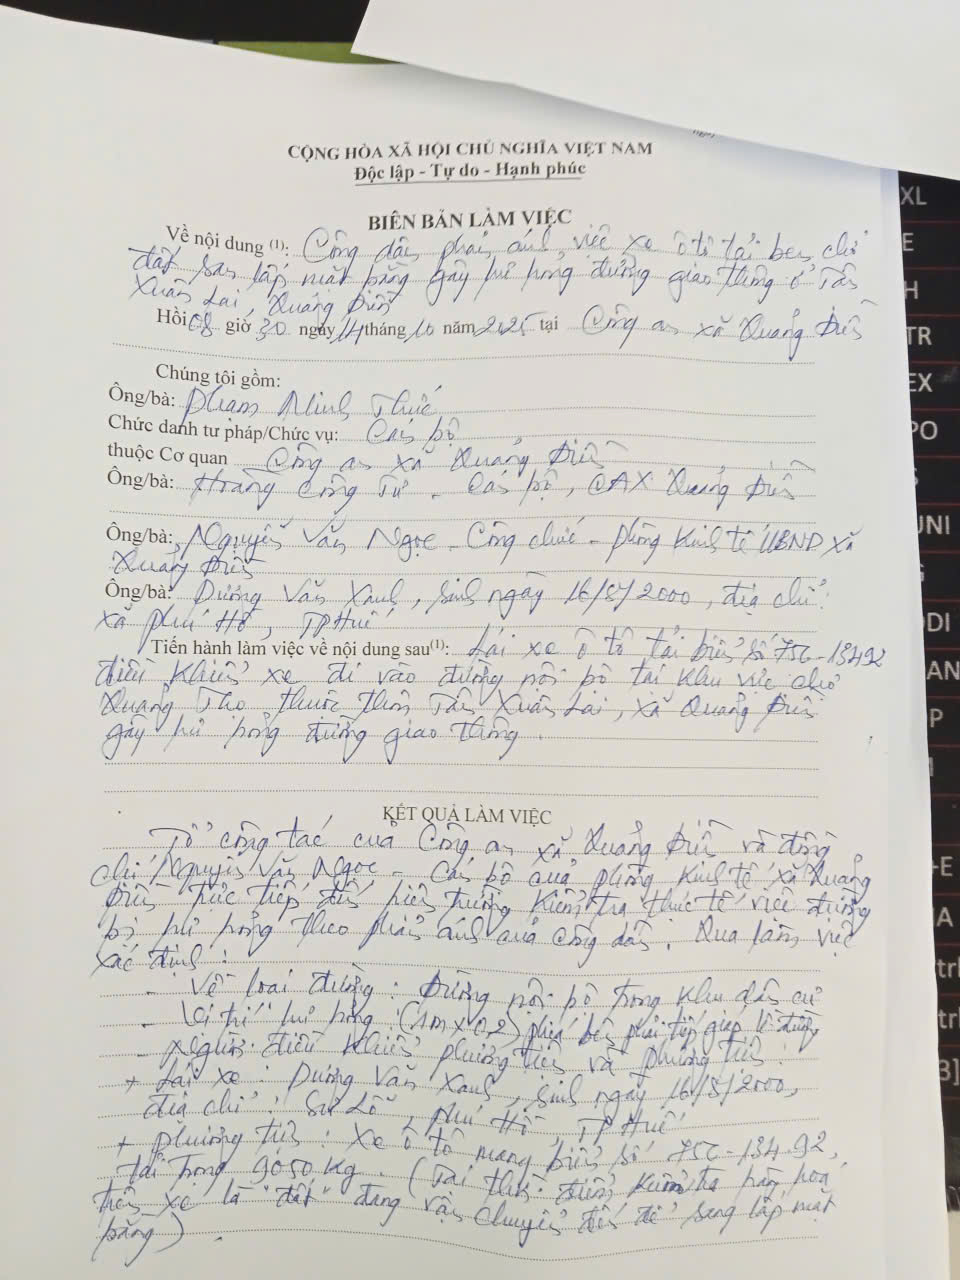 CỘNG HÒA XÃ HỘI CHỦ NGHĨA VIỆT NAM
Độc lập - Tự do - Hạnh phúc
BIÊN BẢN LÀM VIỆC
Về nội dung (1): Công dân phản ánh việc xe ô tô tải ben chở
đất san lấp mặt bằng gây hư hỏng đường giao thông ở Tân
Xuân Lai, Quảng Điền
Hồi 08 giờ 30 ngày 14 tháng 10 năm 2025 tại Công an xã Quảng Điền
Chúng tôi gồm:
Ông/bà: Phạm Minh Thức
Chức danh tư pháp/Chức vụ: Cán bộ
thuộc Cơ quan Công an xã Quảng Điền
Ông/bà: Hoàng Công Tư - Cán bộ, CAX Quảng Điền
Ông/bà: Nguyễn Văn Ngọc - Công chức - phòng Kinh tế UBND xã
Quảng Điền
Ông/bà: Dương Văn Xanh, sinh ngày 16/5/2000, địa chỉ:
xã Phú Hồ, TP Huế
Tiến hành làm việc về nội dung sau(1): Lái xe ô tô tải biển số 75C-13492
điều khiển xe đi vào đường nội bộ tại khu vực chợ
Quảng Thọ thuộc thôn Tân Xuân Lai, xã Quảng Điền
gây hư hỏng đường giao thông.
KẾT QUẢ LÀM VIỆC
Tổ công tác của Công an xã Quảng Điền và đồng
chí Nguyễn Văn Ngọc - Cán bộ của phòng Kinh tế xã Quảng
Điền trực tiếp đến hiện trường kiểm tra thực tế việc đường
bị hư hỏng theo phản ánh của công dân. Qua làm việc
xác định:
- Về loại đường: Đường nội bộ trong khu dân cư
- Vị trí hư hỏng: (1m x 0,2) phía bên phải tiếp giáp lề đường
- Người điều khiển phương tiện và phương tiện:
+ Lái xe: Dương Văn Xanh, sinh ngày 16/5/2000,
địa chỉ: Sư Lỗ, Phú Hồ, TP Huế
+ Phương tiện: Xe ô tô mang biển số 75C-134.92,
tải trọng 9050 kg. (Tại thời điểm kiểm tra hàng hoá
trên xe là "đất" đang vận chuyển đến để sang lấp mặt
bằng)